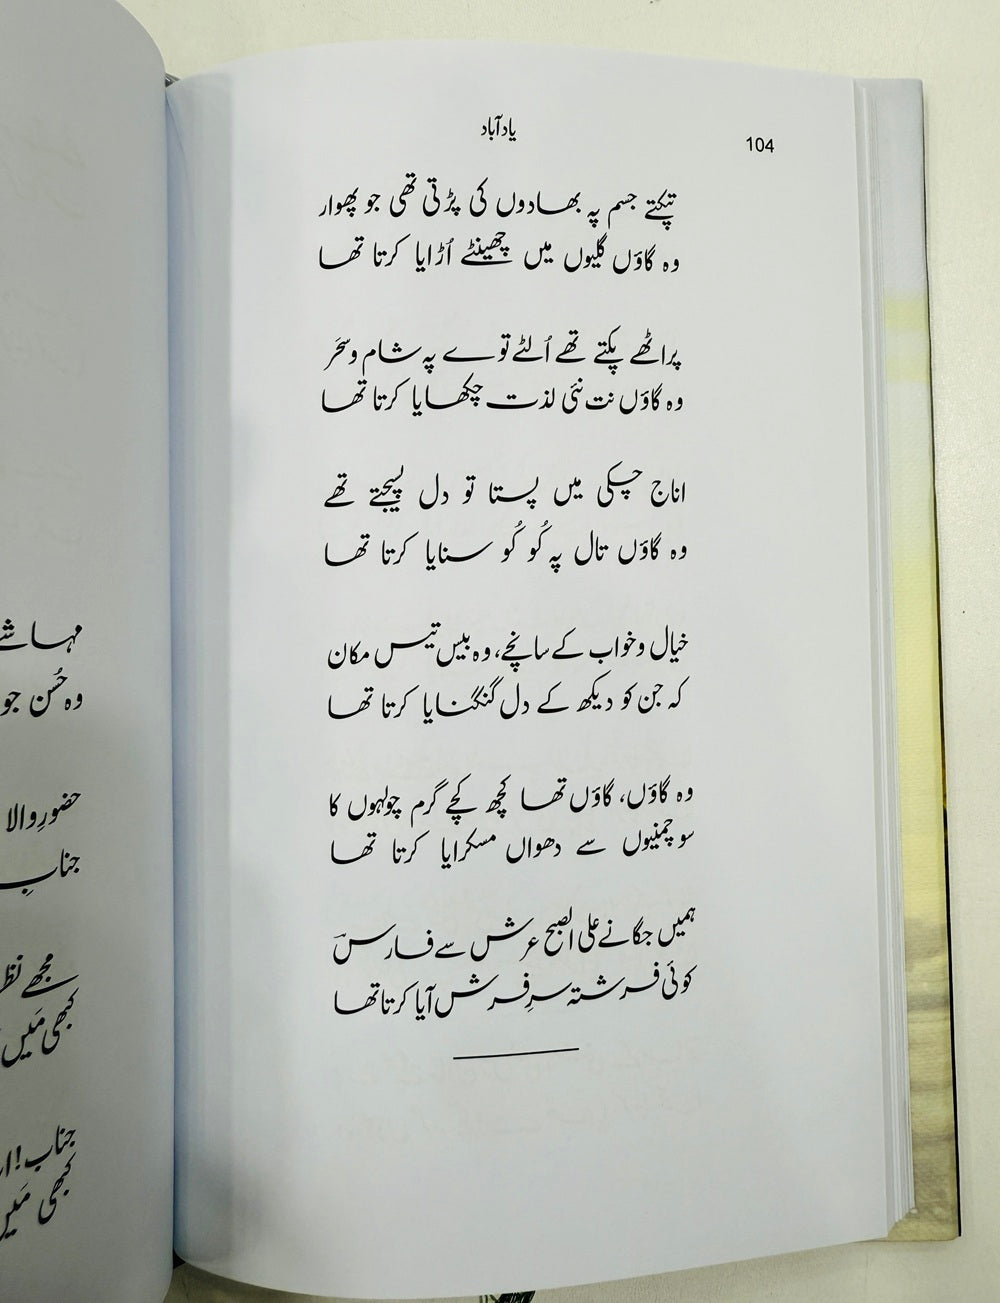 یاد آباد
104
تپکتے جسم پہ بھادوں کی پڑتی تھی جو پھوار
وہ گاؤں گلیوں میں چھینٹے اُڑایا کرتا تھا
پراٹھے پکتے تھے اُلٹے توے پہ شام و سحَر
وہ گاؤں نت نئی لذت چکھایا کرتا تھا
اناج چکی میں پستا تو دل پسیجتے تھے
وہ گاؤں تال پہ کُو کُو سنایا کرتا تھا
خیال و خواب کے سانچے، وہ بیس تیس مکان
کہ جن کو دیکھ کے دل گنگنایا کرتا تھا
وہ گاؤں، گاؤں تھا کچھ کچے گرم چولہوں کا
سو چمنیوں سے دھواں مسکرایا کرتا تھا
ہمیں جگانے علی الصبح عرش سے فارسؔ
کوئی فرشتہ سرِ فرش آیا کرتا تھا
مہا
وہ حُسن جو
حضورِ والا
جنابِ
مجھے
کبھی مَیں
جناب!
کبھی مَیں